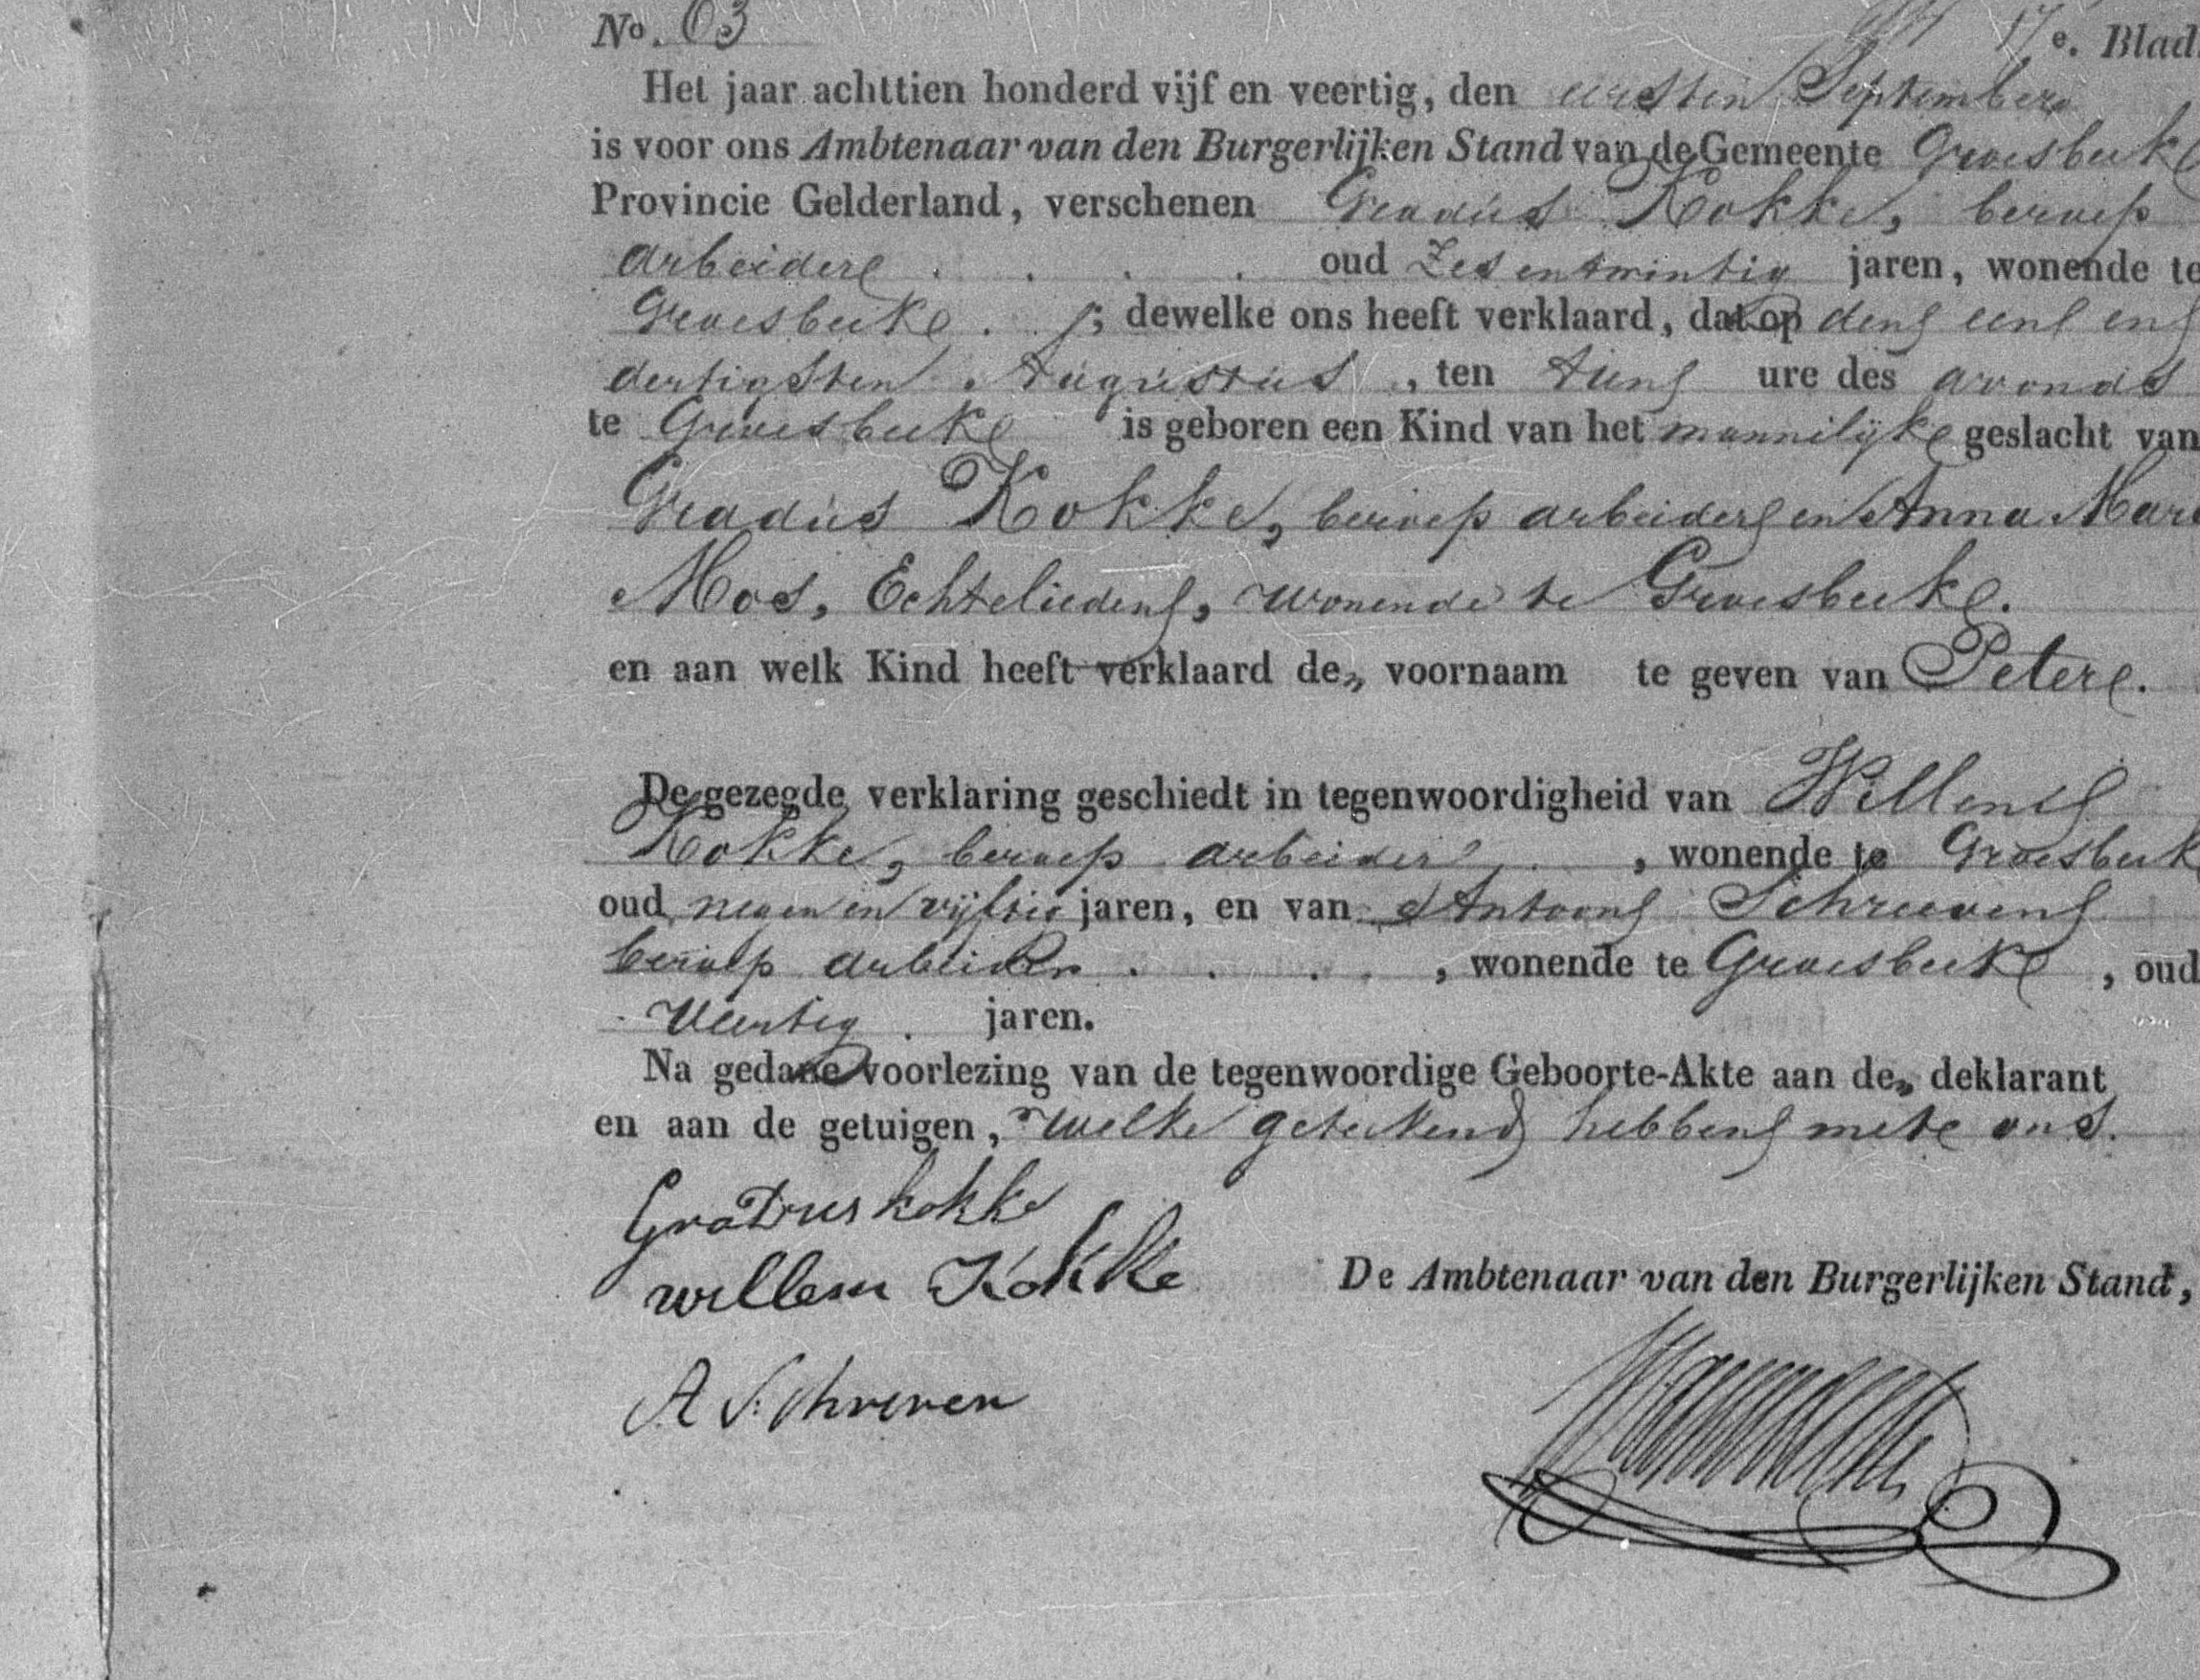 No. 63 17e. Blad.
Het jaar achttien honderd vijf en veertig, den eersten September
is voor ons Ambtenaar van den Burgerlijken Stand van de Gemeente Groesbeek
Provincie Gelderland, verschenen Gradus Kokke, beroep
arbeider . . . . oud Zes en twintig jaren, wonende te
Groesbeek . ; dewelke ons heeft verklaard, dat op den een en
dertigsten Augustus, ten tien ure des avonds
te Groesbeek is geboren een Kind van het mannelijk geslacht van
Gradus Kokke, beroep arbeider en Anna Mar
Mos, Echtelieden, wonende te Groesbeek.
en aan welk Kind heeft verklaard de„ voornaam te geven van Peter.
De gezegde verklaring geschiedt in tegenwoordigheid van Willem
Kokke, beroep arbeider, wonende te Groesbeek
oud negen en vijftig jaren, en van Antoon Schreeven
beroep arbeider . . . . , wonende te Groesbeek, oud
Veertig . jaren.
Na gedane voorlezing van de tegenwoordige Geboorte-Akte aan de„ deklarant
en aan de getuigen, welke geteekend hebben met ons.
Gradus kokke
willem Kokke
De Ambtenaar van den Burgerlijken Stand,
A Schreven